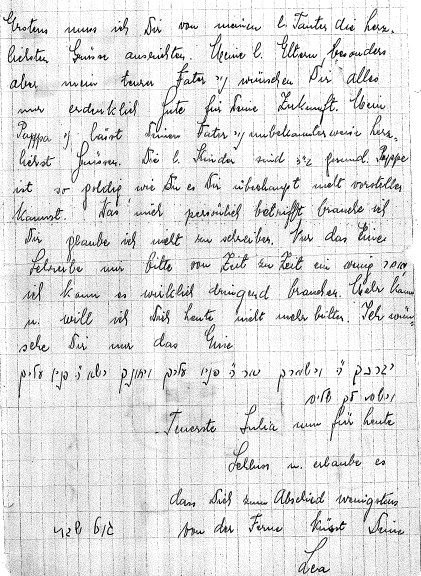 Erstens muss ich Dir von meinen l. Tanten die herz-
lichsten Grüsse ausrichten. Meine l. Eltern, besonders
aber mein teurer Vater נ״י wünschen Dir alles
nur erdenklich Gute für Deine Zukunft. Mein
Pappa נ״י lässt Deinen Vater נ״י unbekannterweise herz-
lichst Grüssen. Die l. Kinder sind ב״ה gesund. Pappe
ist so goldig wie Du es Dir überhaupt nicht vorstellen
kannst. Was mich persönlich betrifft brauche ich
Dir glaube ich nicht zu schreiben. Nur das Eine
Schreibe mir bitte von Zeit zu Zeit ein wenig
ich kann es wirklich dringend brauchen. Mehr kann
u. will ich Dich heute nicht mehr bitten. Ich wün-
sche Dir nur das Eine
יברכך ה׳ וישמרך יאר ה׳ פניו אליך ויחונך ישא ה׳ פניו אליך
וישם לך שלום
Teuerste Julia nun für heute
Schluss u. erlaube es
dass Dich zum Abschied wenigstens
von der Ferne küsst Deine
גוט שבת
Lea